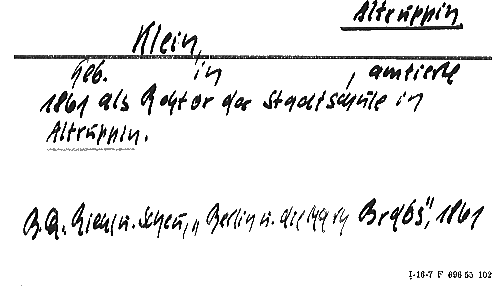 Altruppin
Klein,
geb. in , amtierte
1861 als Rektor der Stadtschule in
Altruppin.
Berlin u. die Mark Brdbg", 1861
I-16-7 F 696 55 102